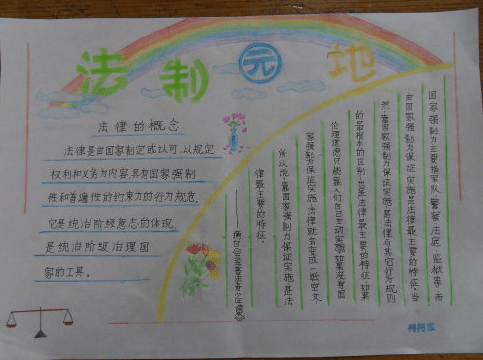 法制园地
法律的概念
法律是由国家制定或认可,以规定
权利和义务为内容,具有国家强制
性和普遍性的约束力的行为规范,
它是统治阶级意志的体现,
是统治阶级治理国
家的工具。
国家强制力主要指军队、警察、法庭、监狱等,而
由国家强制力保证实施是法律最主要的特征。当
然靠国家强制力保证实施是法律与其它行为规则
的最根本的区别,也是法律最主要的特征,如果
伦理道德只能靠人们自己主动实施如果没有国
家强制力保证实施,法律就会变成一纸空文,
所以说,靠国家强制力保证实施是法
律最主要的特征。
——摘自